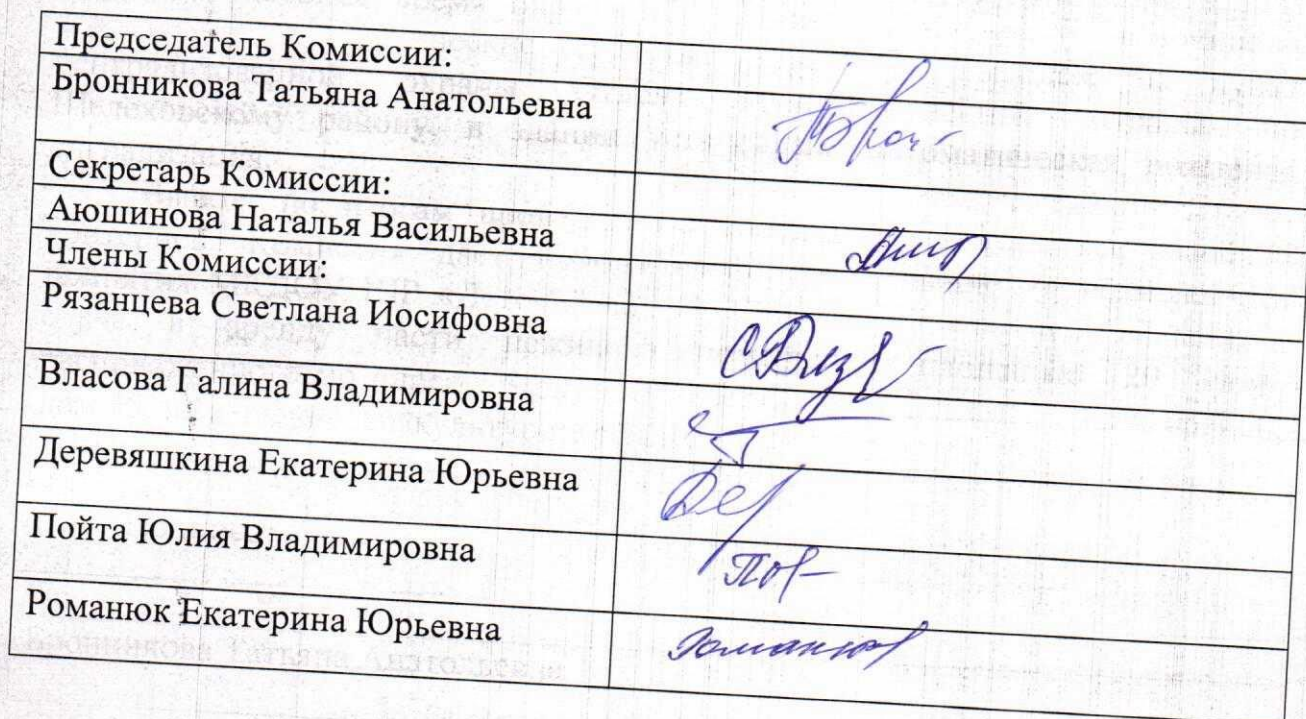 Председатель Комиссии:
Бронникова Татьяна Анатольевна
Секретарь Комиссии:
Аюшинова Наталья Васильевна
Члены Комиссии:
Рязанцева Светлана Иосифовна
Власова Галина Владимировна
Деревяшкина Екатерина Юрьевна
Пойта Юлия Владимировна
Романюк Екатерина Юрьевна